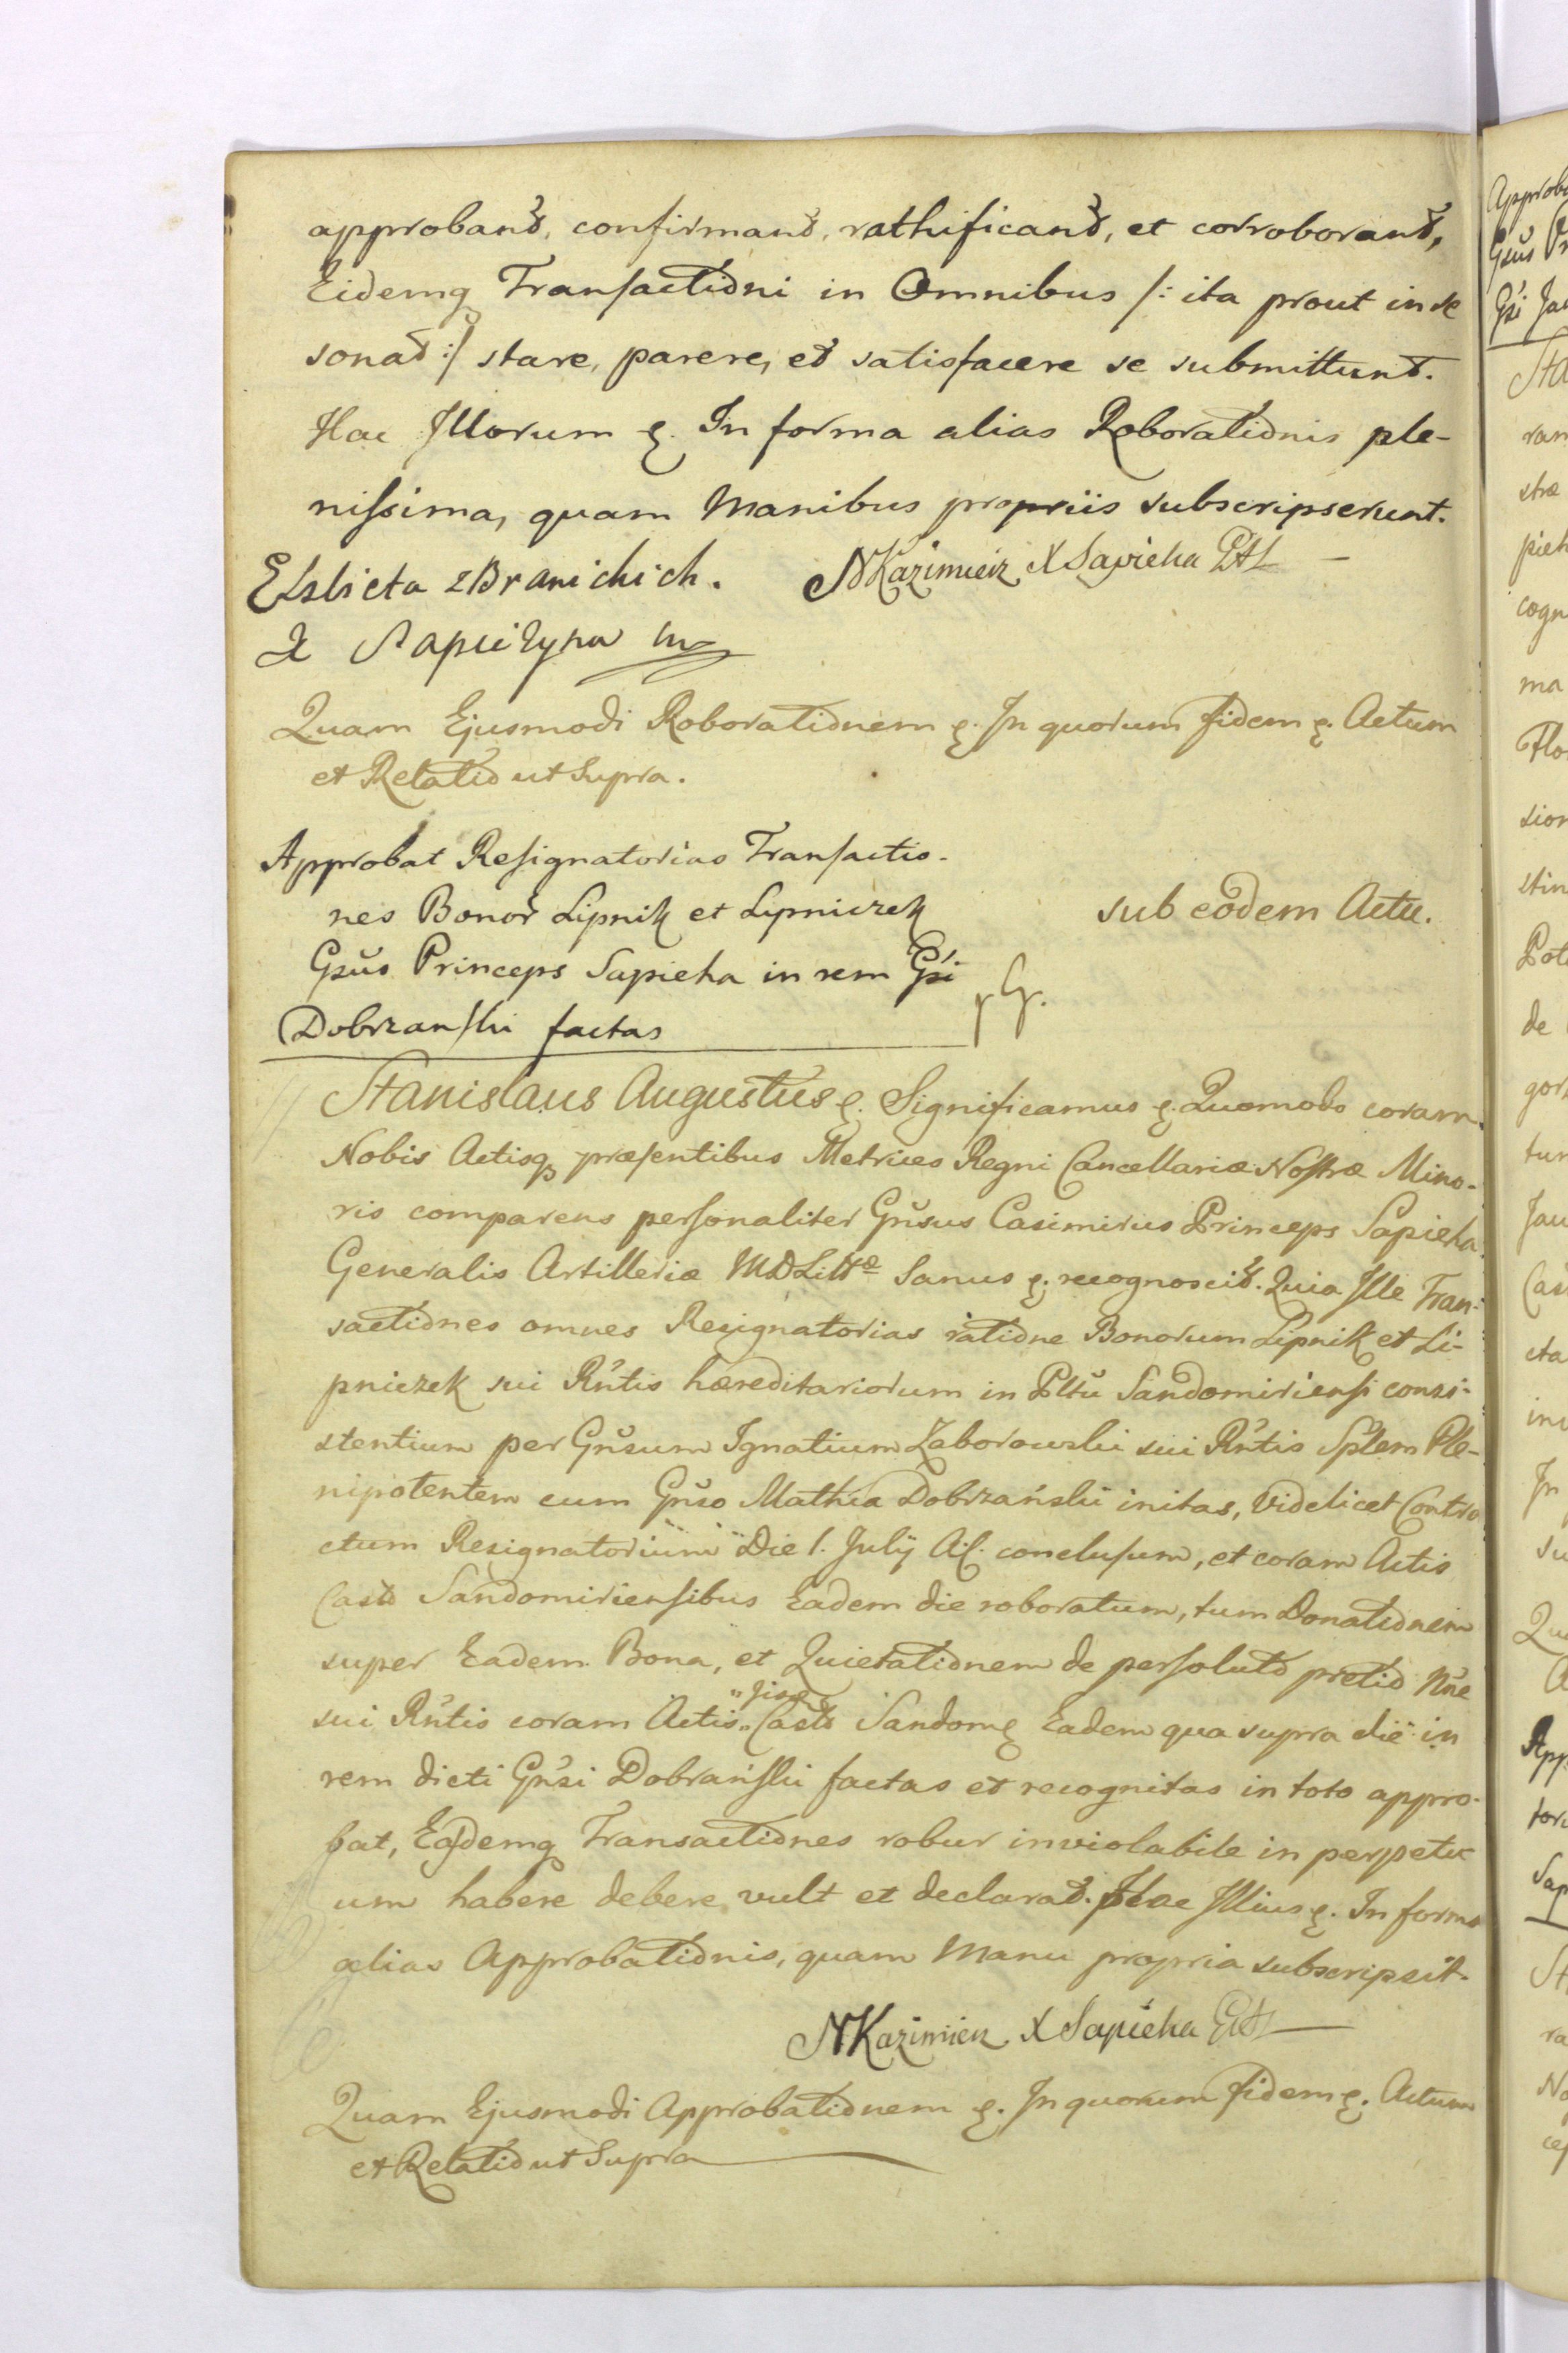 approband, confirmand, rathificand, et corroborand,
Eidemq Transactioni in Omnibus /: ita prout in se
sonat :/ stare, parere, et satisfacere se submittunt.
Hac Illorum ę. In forma alias Roborationis ple-
nissima, quam Manibus propriis subscripserunt.
Elzbieta z Branickich. NKazimierz X Sapieha GAL
X Sapiezyna mp
Quam Ejusmodi Roborationem ę. In quorum fidem ę. Actum
et Relatio ut Supra.
Approbat Resignatorias Transactio-
nes Bonor Lipnik et Lipniczek
sub eodem Actu.
Gsus Princeps Sapieha in rem Gsi
Dobrzanski factas
Stanislaus Augustus ę. Significamus ę. Quomodo coram
Nobis Actisq præsentibus Metrices Regni Cancellariæ Nostræ Mino-
ris comparens personaliter Gnsus Casimirus Princeps Sapieha
Generalis Artilleriæ MDLittæ Sanus ę. recognoscit. Quia Ille Tran-
sactiones omnes Resignatorias ratione Bonorum Lipnik et Li-
pniczek sui Rntis hæreditariorum in Pltu Sandomiriensi consi-
stentium per Gnsum Ignatium Zaborowski sui Rntis Splem Ple-
nipotentem cum Gnso Mathia Dobrzański initas, Videlicet Contra
ctum Resignatorium Die 1. Julij A. C. conclusum, et coram Actis
Castr Sandomiriensibus Eadem die roboratum, tum Donationem
super Eadem Bona, et Quietationem de persoluto pretio Nne
sui Rntis coram Actis Castr Sandom ę Eadem qua supra die in
rem dicti Gnsi Dobrański factas et recognitas in toto appro-
bat, Easdemq Transactiones robur inviolabile in perpetu
um habere debere vult et declarat. Hac Illius ę. In forma
alias Approbationis, quam Manu propria subscripsit.
NKazimierz X Sapieha GAL
Quam Ejusmodi Approbationem ę. In quorum fidem ę. Actum
et Relatio ut Supra